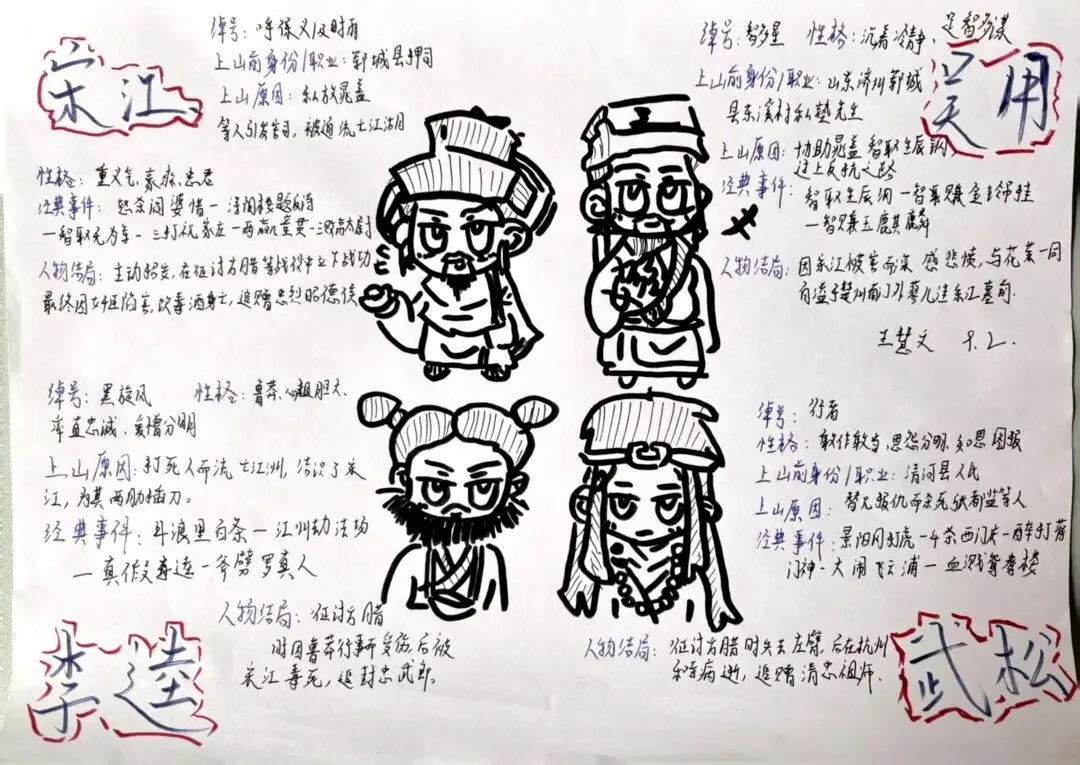 宋江
绰号：呼保义/及时雨
上山前身份/职业：郓城县押司
上山原因：私放晁盖
等人引发官司，被迫流亡江湖
性格：重义气、豪爽、忠君
经典事件：怒杀阎婆惜—浔阳楼题反诗
—智取无为军—三打祝家庄—两赢童贯—三败高太尉
人物结局：主动招安，在征讨方腊等战役中立下战功
最终因奸臣陷害，饮毒酒身亡，追赠忠烈昭德侯
吴用
绰号：智多星 性格：沉着冷静、足智多谋
上山前身份/职业：山东济州郓城
县东溪村私塾先生
上山原因：协助晁盖智取生辰纲，
过上反抗之路
经典事件：智取生辰纲—智取赚金铃吊挂
—智赚玉麒麟
人物结局：因宋江被害而深感悲愤，与花荣一同
自缢于楚州南门外蓼儿洼宋江墓前.
王慧文 9.2.
绰号：黑旋风 性格：鲁莽、心粗胆大、
率直忠诚、爱憎分明
上山原因：打死人而流亡江州，结识了宋
江，为其两肋插刀。
经典事件：斗浪里白条—江州劫法场
—真假李逵—斧劈罗真人
人物结局：征讨方腊
时因鲁莽行事而受伤，后被
宋江毒死，追封忠武郎。
李逵
绰号：行者
性格：敢作敢当、恩怨分明、知恩图报
上山前身份/职业：清河县人氏
上山原因：替兄报仇而杀死张都监等人
经典事件：景阳冈打虎—斗杀西门庆—醉打蒋
门神—大闹飞云浦—血溅鸳鸯楼
人物结局：征讨方腊时失去左臂，后在杭州
病逝，追赠清忠祖师.
武松